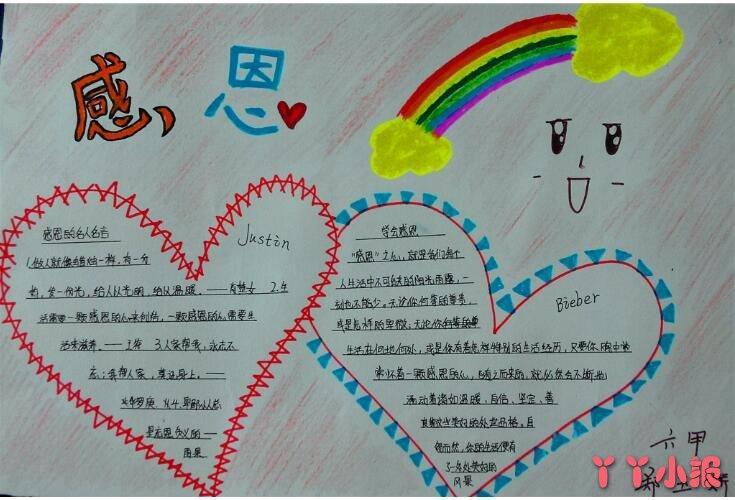 感恩
感恩的名人名言
Justin
1.做人就像蜡烛一样，有一分
热，发一份光，给人以光明，给以温暖。——肖楚女 2.生
活需要一颗感恩的心来创造，一颗感恩的心需要生
活来滋养。——王符 3.人家帮我，永志不
忘；我帮人家，莫记心上。——
华罗庚 4.卑鄙小人总
是忘恩负义的——
雨果
学会感恩
"感恩"之心，就是我们每个
人生活中不可或缺的阳光雨露，一
刻也不能少。无论你何等的尊贵，
或是怎样的卑微；无论你
生活在何地何处，或是你有着怎样特别的生活经历，只要你胸中
常怀着一颗感恩的心，随之而来的，就必然会不断地
涌动着诸如温暖、自信、坚定、善
良这些美好的处世品格。自
然而然，你的生活便有
了一处处美好的
风景
Bieber
六甲
丫丫小派